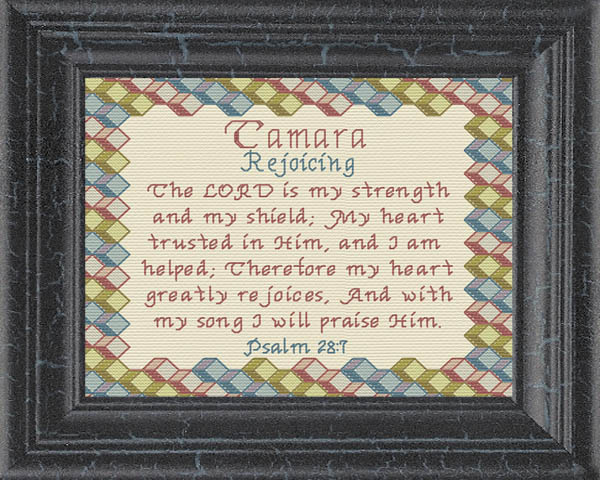 Tamara
Rejoicing
The LORD is my strength
and my shield; My heart
trusted in Him, and I am
helped; Therefore my heart
greatly rejoices, And with
my song I will praise Him.
Psalm 28:7